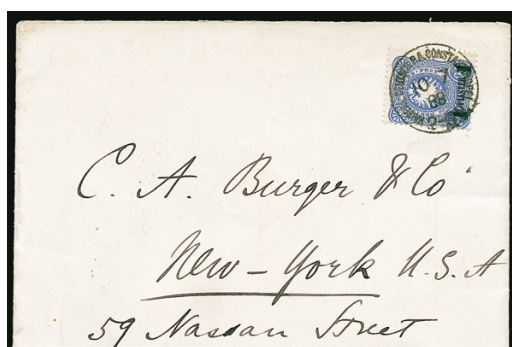 CONSTANTINOPEL
10 7
88
C. A. Burger & Co
New-York U.S.A
59 Nassau Street